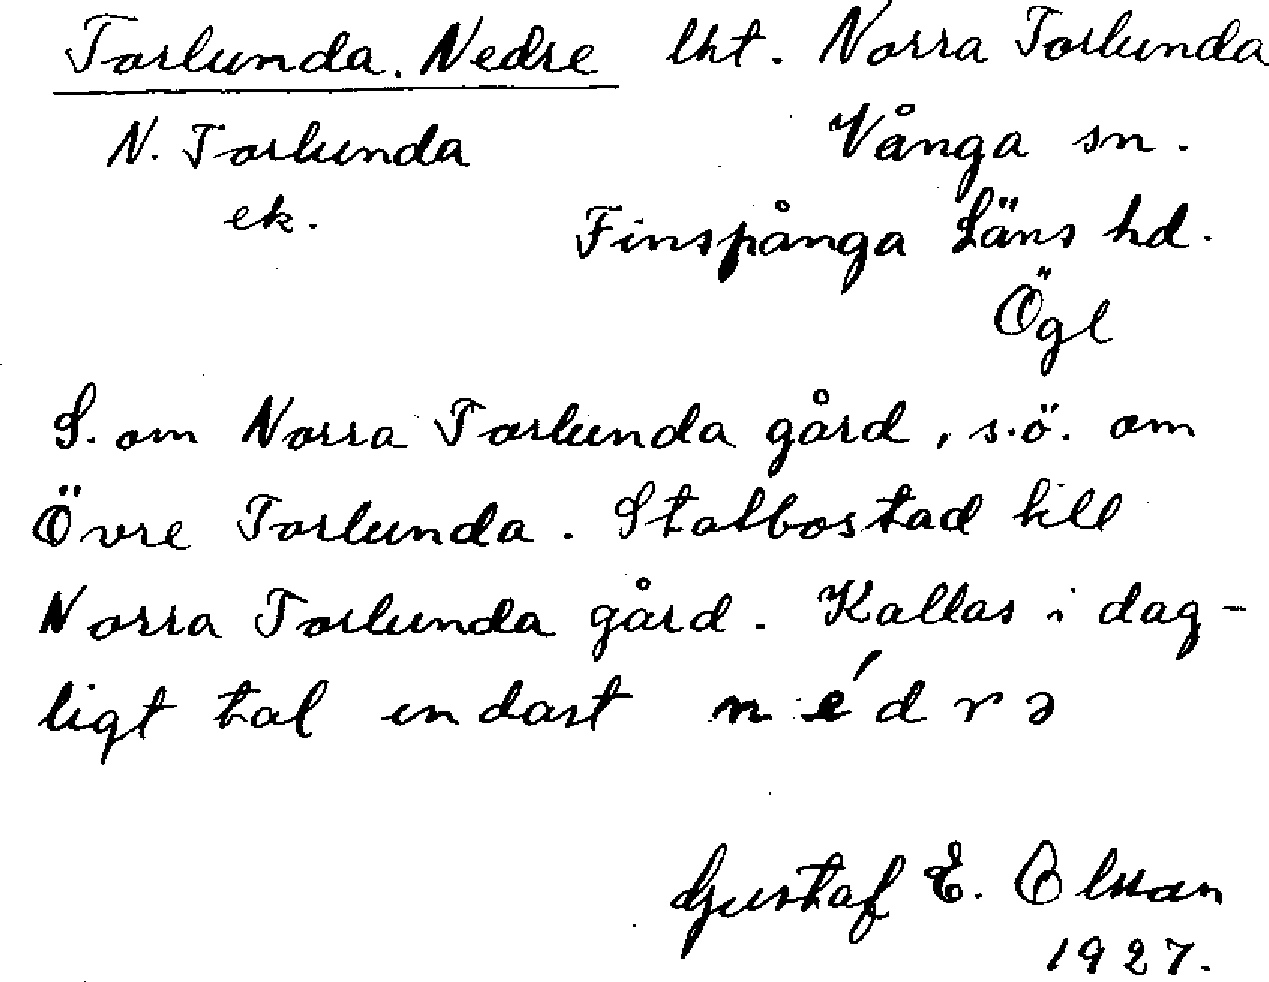 Torlunda, Nedre lht. Norra Torlunda
N. Torlunda Vånga sn.
ek. Finspånga Läns hd.
Ögl
S. om Norra Torlunda gård, s.ö. om
Övre Torlunda. Statbostad till
Norra Torlunda gård. Kallas i dag-
ligt tal endast nédrə
Gustaf E. Olsson
1927.